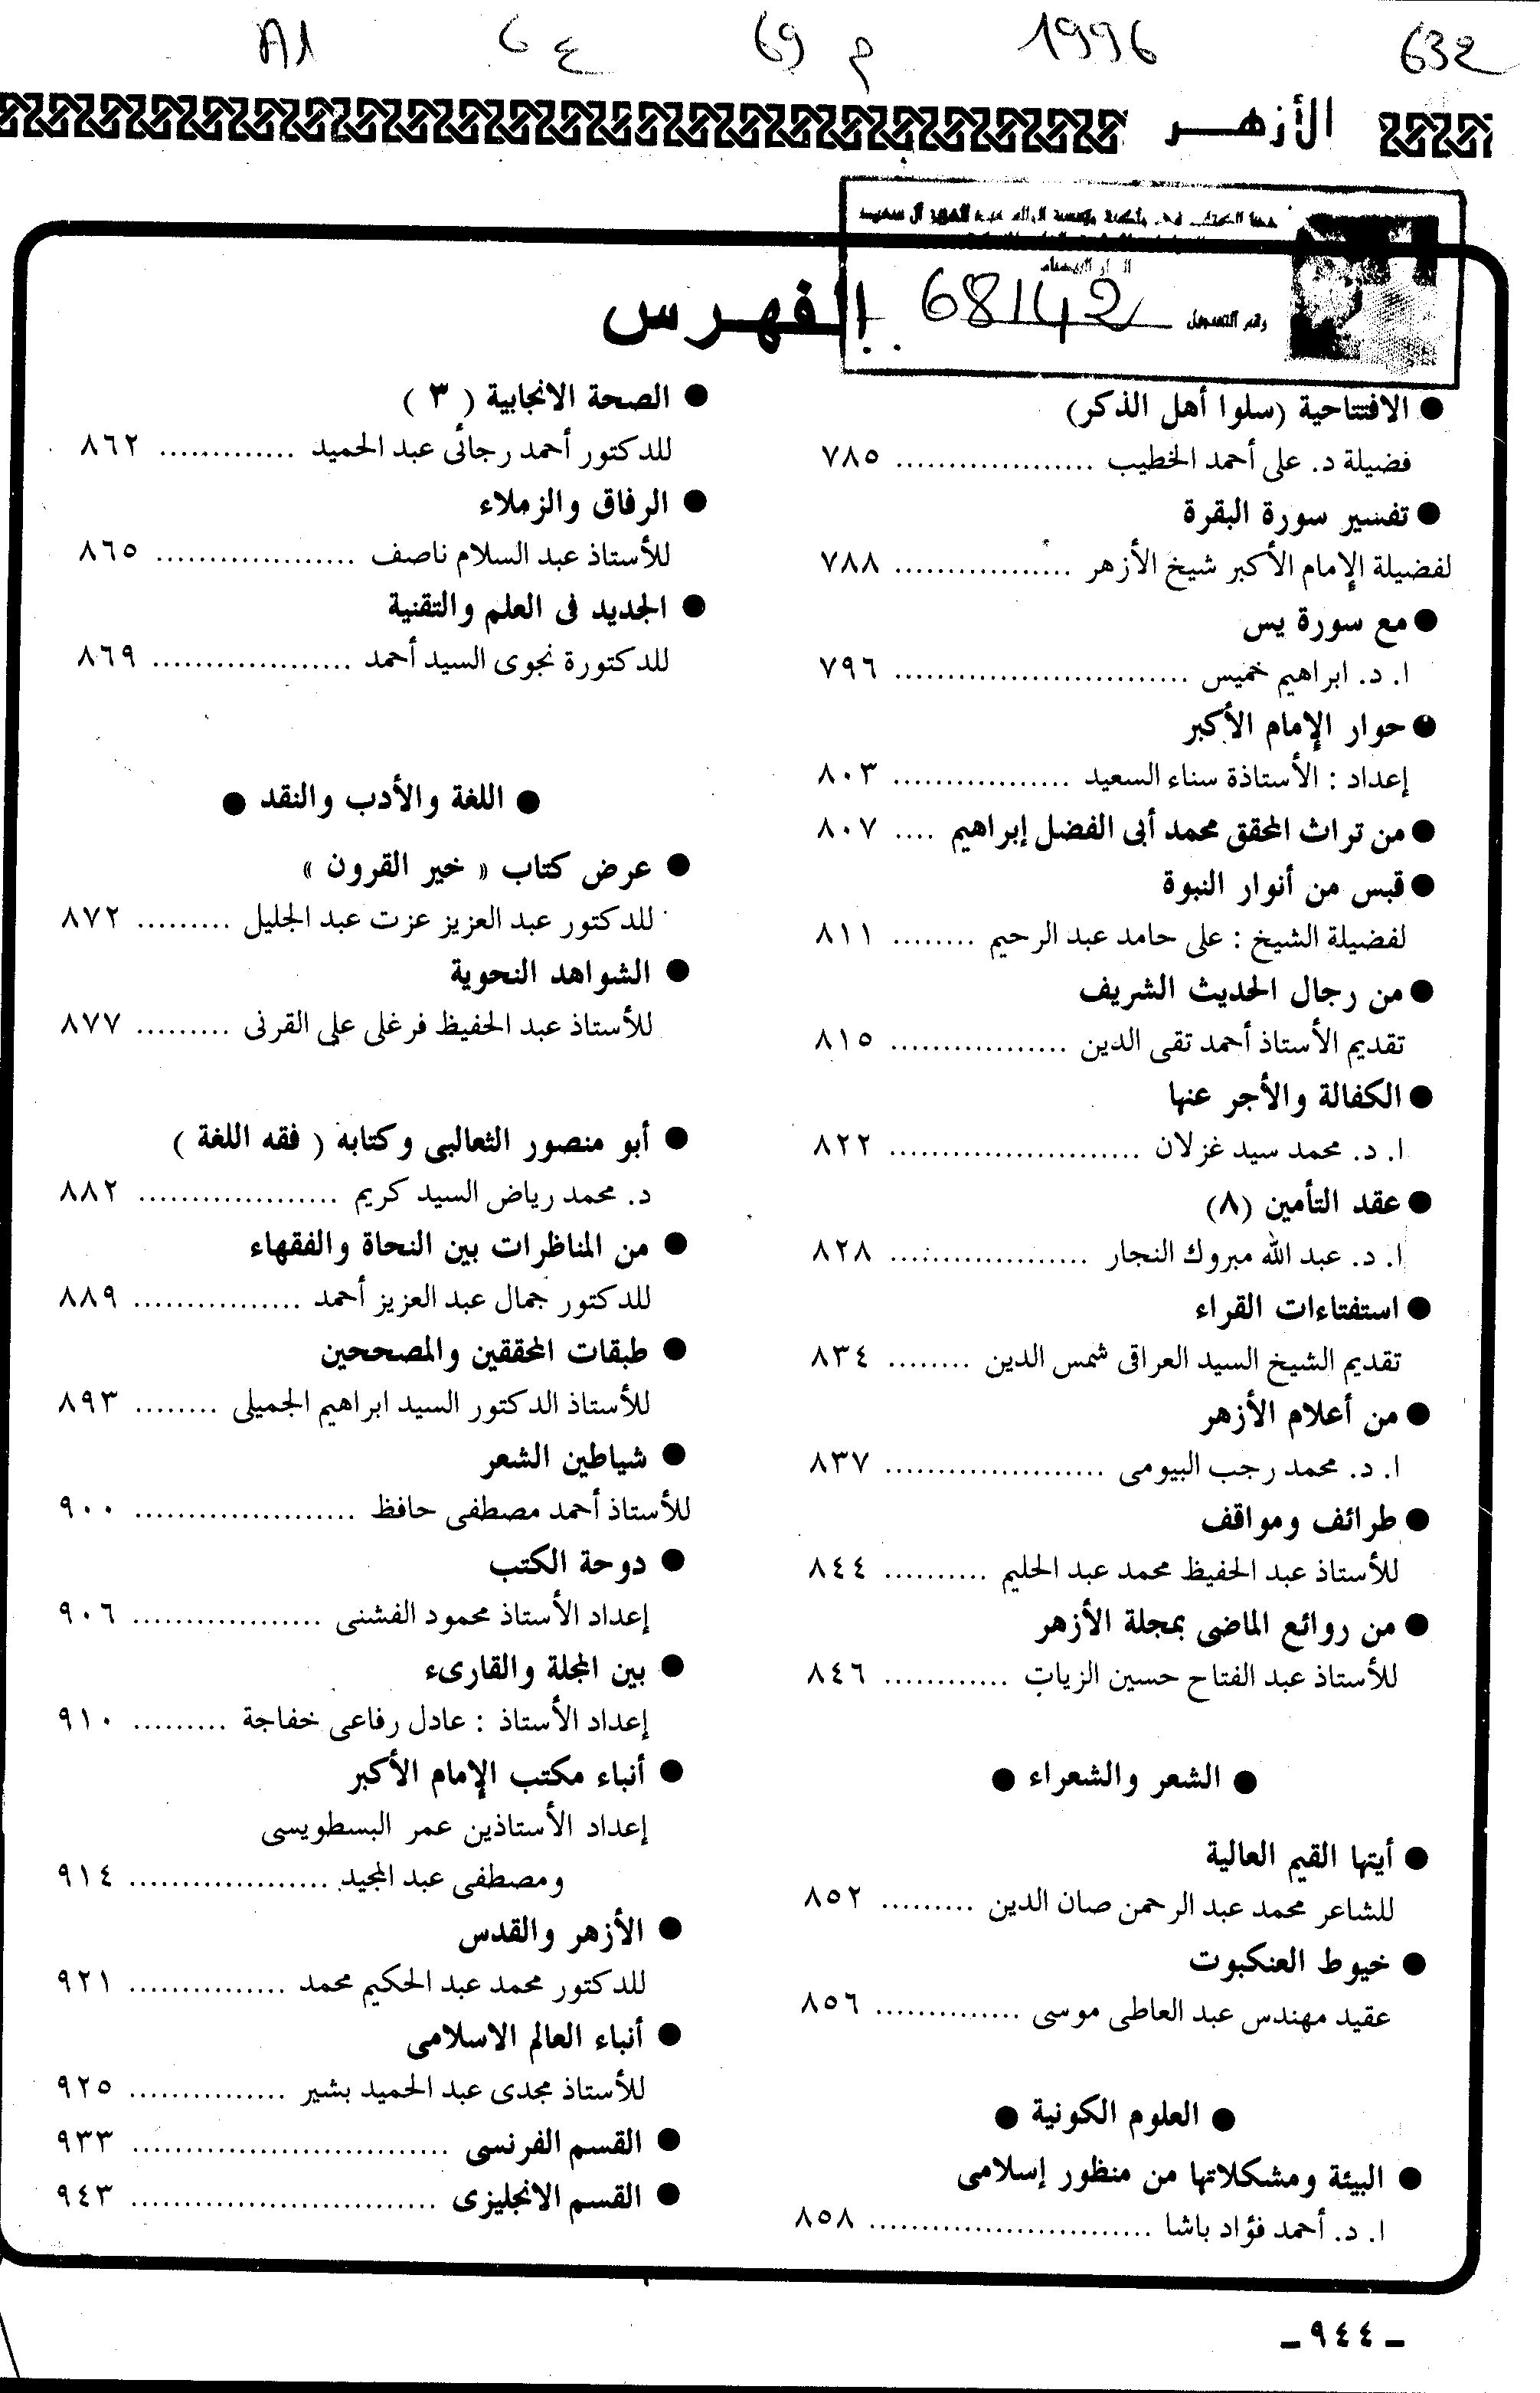 632 1996 م 69 ع 6 A1
الأزهر
68142
رقم التسجيل
الفهرس
● الافتتاحية (سلوا أهل الذكر)
فضيلة د. على أحمد الخطيب ................... ٧٨٥
● تفسير سورة البقرة
لفضيلة الإمام الأكبر شيخ الأزهر ................. ٧٨٨
● مع سورة يس
ا. د. ابراهيم خميس ............................ ٧٩٦
● حوار الإمام الأكبر
إعداد : الأستاذة سناء السعيد ................. ٨٠٣
● من تراث المحقق محمد أبى الفضل إبراهيم .... ٨٠٧
● قبس من أنوار النبوة
لفضيلة الشيخ : على حامد عبد الرحيم ........ ٨١١
● من رجال الحديث الشريف
تقديم الأستاذ أحمد تقى الدين ................. ٨١٥
● الكفالة والأجر عنها
ا. د. محمد سيد غزلان ........................ ٨٢٢
● عقد التأمين (٨)
ا. د. عبد الله مبروك النجار ................... ٨٢٨
● استفتاءات القراء
تقديم الشيخ السيد العراقى شمس الدين ........ ٨٣٤
● من أعلام الأزهر
ا. د. محمد رجب البيومى ..................... ٨٣٧
● طرائف ومواقف
للأستاذ عبد الحفيظ محمد عبد الحليم .......... ٨٤٤
● من روائع الماضى بمجلة الأزهر
للأستاذ عبد الفتاح حسين الزيات ............ ٨٤٦
● الشعر والشعراء ●
● أيتها القيم العالية
للشاعر محمد عبد الرحمن صان الدين ......... ٨٥٢
● خيوط العنكبوت
عقيد مهندس عبد العاطى موسى .............. ٨٥٦
● العلوم الكونية ●
● البيئة ومشكلاتها من منظور إسلامى
ا. د. أحمد فؤاد باشا ........................... ٨٥٨
● الصحة الانجابية ( ٣ )
للدكتور أحمد رجائى عبد الحميد ............. ٨٦٢
● الرفاق والزملاء
للأستاذ عبد السلام ناصف ................... ٨٦٥
● الجديد فى العلم والتقنية
للدكتورة نجوى السيد أحمد ................... ٨٦٩
● اللغة والأدب والنقد ●
● عرض كتاب « خير القرون »
للدكتور عبد العزيز عزت عبد الجليل ......... ٨٧٢
● الشواهد النحوية
للأستاذ عبد الحفيظ فرغلى على القرنى ......... ٨٧٧
● أبو منصور الثعالبى وكتابه ( فقه اللغة )
د. محمد رياض السيد كريم ................... ٨٨٢
● من المناظرات بين النحاة والفقهاء
للدكتور جمال عبد العزيز أحمد ................ ٨٨٩
● طبقات المحققين والمصححين
للأستاذ الدكتور السيد ابراهيم الجميلى ........ ٨٩٣
● شياطين الشعر
للأستاذ أحمد مصطفى حافظ ..................... ٩٠٠
● دوحة الكتب
إعداد الأستاذ محمود الفشنى .................. ٩٠٦
● بين المجلة والقارىء
إعداد الأستاذ : عادل رفاعى خفاجة ......... ٩١٠
● أنباء مكتب الإمام الأكبر
إعداد الأستاذين عمر البسطويسى
ومصطفى عبد المجيد ................... ٩١٤
● الأزهر والقدس
للدكتور محمد عبد الحكيم محمد ............... ٩٢١
● أنباء العالم الاسلامى
للأستاذ مجدى عبد الحميد بشير ............... ٩٢٥
● القسم الفرنسى .............................. ٩٣٣
● القسم الانجليزى ............................. ٩٤٣
ـ ٩٤٤ ـ